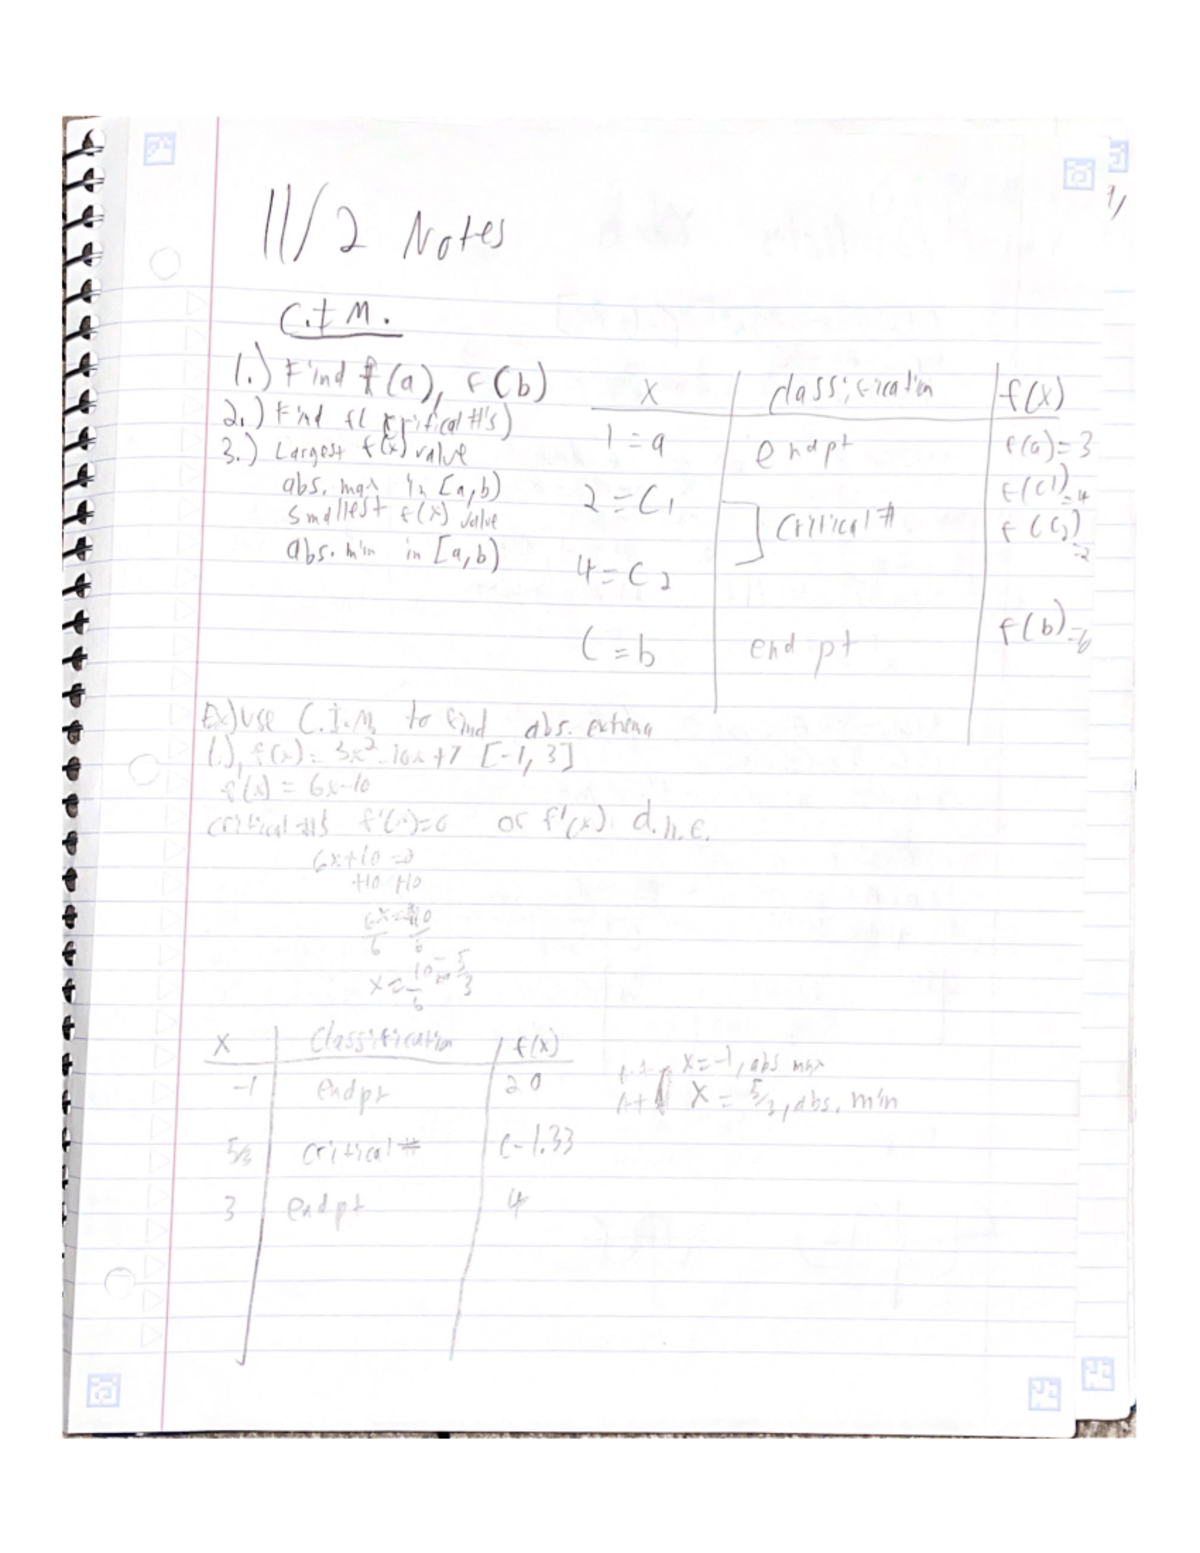 11/2 Notes
C.I.M.
1.) Find f(a), f(b)
2.) Find f( critical #'s)
3.) Largest f(x) value
abs. max in [a,b)
Smallest f(x) value
abs. min in [a,b)
x classification f(x)
1=a endpt f(a)=3
2=C1 critical # f(C1)=4
4=C2 f(C2)=2
C=b end pt f(b)=6
Ex) Use C.I.M. to find abs. extrema
1.), f(x)= 3x²-10x+7 [-1, 3]
f'(x) = 6x-10
critical #'s f'(x)=0 or f'(x) d.n.e.
6x+10=0
+10 +10
6x=10
6 6
x=10/6=5/3
x Classification f(x)
-1 endpt 20
5/3 critical # -1.33
3 endpt 4
At x=-1, abs max
At x=5/3, abs. min